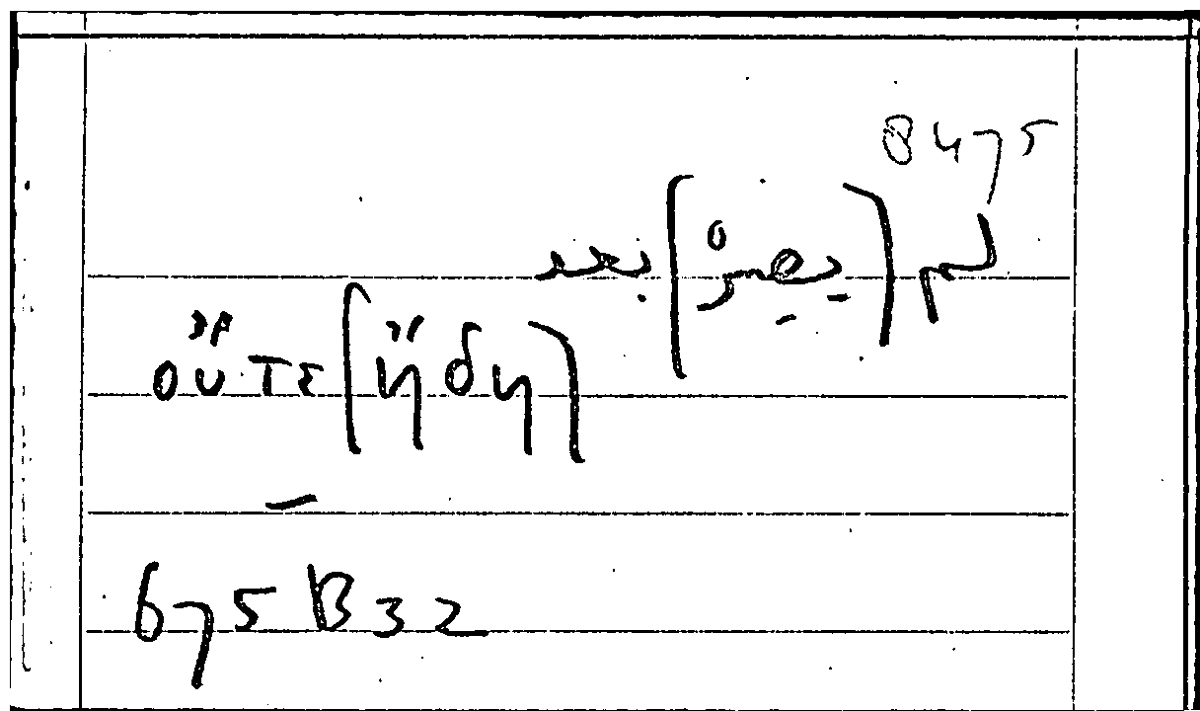 8475
لم (يصِرْ) بعد
οὔτε (ἤδη)
675 B 32